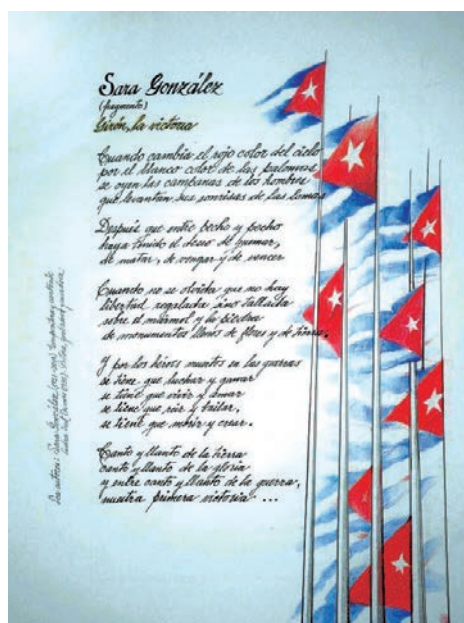 Sara González
(fragmento)
Girón, la victoria
Cuando cambia el rojo color del cielo
por el blanco color de las palomas
se oyen las campanas de los hombres
que levantan sus sonrisas de las lomas
Después que entre pecho y pecho
haya tenido el deseo de quemar,
de matar, de vengar y de vencer
Cuando no se olvida que no hay
libertad regalada sino tallada
sobre el mármol y la piedra
de monumentos llenos de flores y de tierra.
Y por los héroes muertos en las guerras
se tiene que luchar y ganar
se tiene que vivir y amar
se tiene que reír y bailar,
se tiene que morir y crear.
Canto y llanto de la tierra
canto y llanto de la gloria
y entre canto y llanto de la guerra,
nuestra primera victoria ...
Sara González